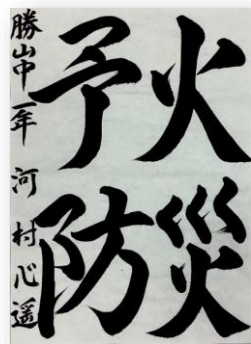 火災
予防
勝山中一年 河村心遥